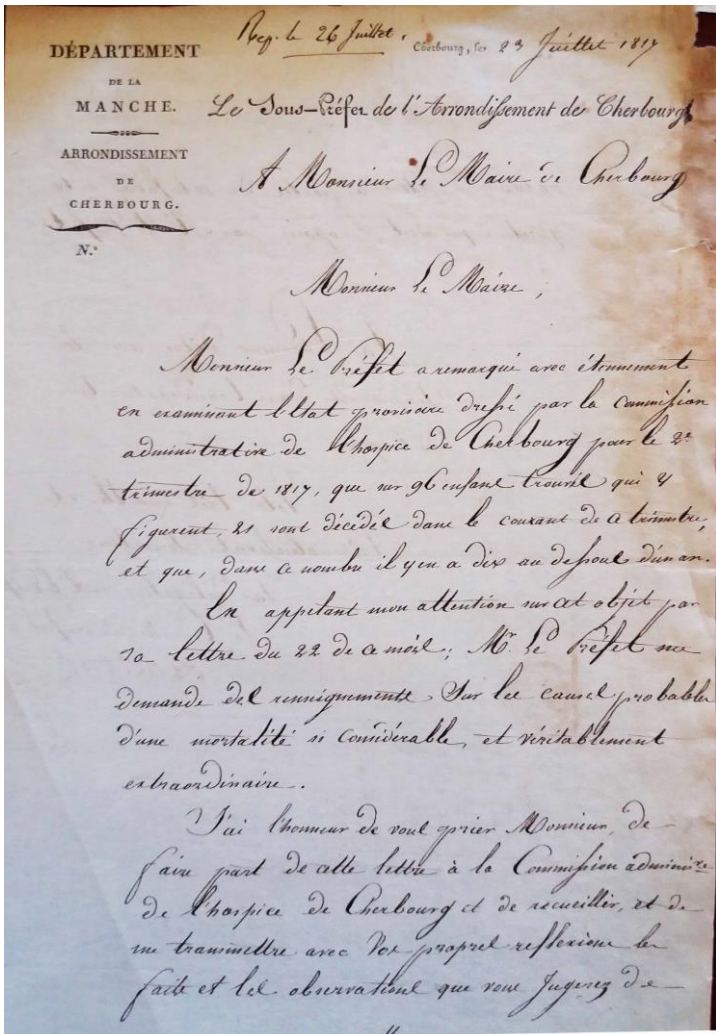 Rep. le 26 Juillet.
Cherbourg, le 23 Juillet 1817
DÉPARTEMENT
DE LA
MANCHE.
ARRONDISSEMENT
DE
CHERBOURG.
N.°
Le Sous-Préfet de l'Arrondissement de Cherbourg
A Monsieur Le Maire de Cherbourg
Monsieur Le Maire,
Monsieur Le Préfet a remarqué avec étonnement
en examinant l'Etat provisoire dressé par la Commission
administrative de l'hospice de Cherbourg pour le 2e
trimestre de 1817, que sur 96 enfans trouvés qui y
figurent, 21 sont décédés dans le courant de ce trimestre,
et que, dans ce nombre il y en a dix au dessous d'un an.
En appelant mon attention sur cet objet par
sa lettre du 22 de ce mois; Mr. Le Préfet me
demande des renseignements sur les causes probables
d'une mortalité si considérable, et véritablement
extraordinaire.
J'ai l'honneur de vous prier Monsieur, de
faire part de cette lettre à la Commission adminisve
de l'hospice de Cherbourg et de recueillir, et de
me transmettre avec vos propres reflexions les
faits et les observations que vous Jugerez de